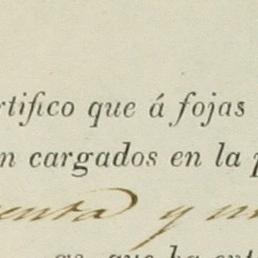 rtifico que á fojas
n cargados en la p
enta y
que ha